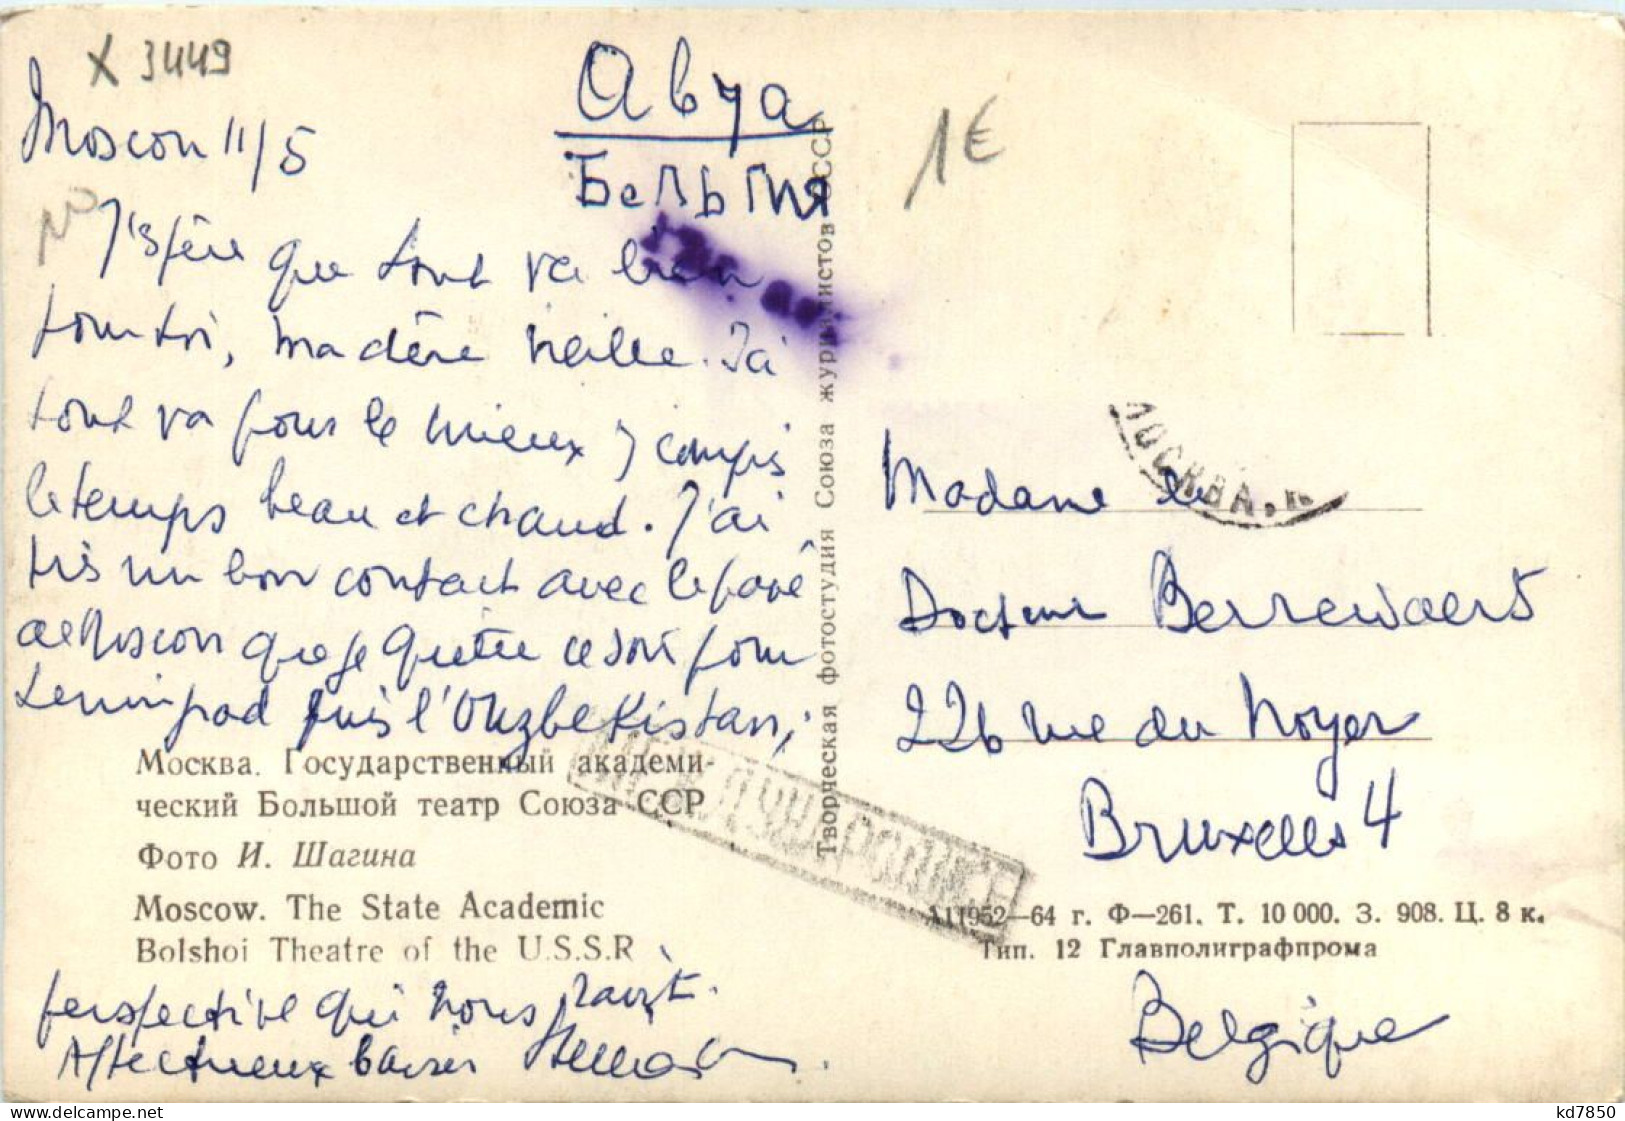 X 3449
Moscou 11/5
Авиа
Бельгия
1€
J'espère que tout va bien
pour toi, ma chère vieille. Ici
tout va pour le mieux y compris
le temps beau et chaud. J'ai
pris un bon contact avec le pavé
de Moscou que je quitte ce soir pour
Leningrad puis l'Ouzbekistan,
Москва. Государственный академи-
ческий Большой театр Союза ССР
Фото И. Шагина
Moscow. The State Academic
Bolshoi Theatre of the U.S.S.R
perspective qui nous ravit.
Affectueux baiser
Творческая фотостудия Союза журналистов СССР
МОСКВА
МЕЖДУНАРОДНОЕ
Madame le
Docteur Berrewaerts
226 rue du Noyer
Bruxelles 4
А11952—64 г. Ф—261. Т. 10 000. З. 908. Ц. 8 к.
Тип. 12 Главполиграфпрома
Belgique
kd7850
www.delcampe.net